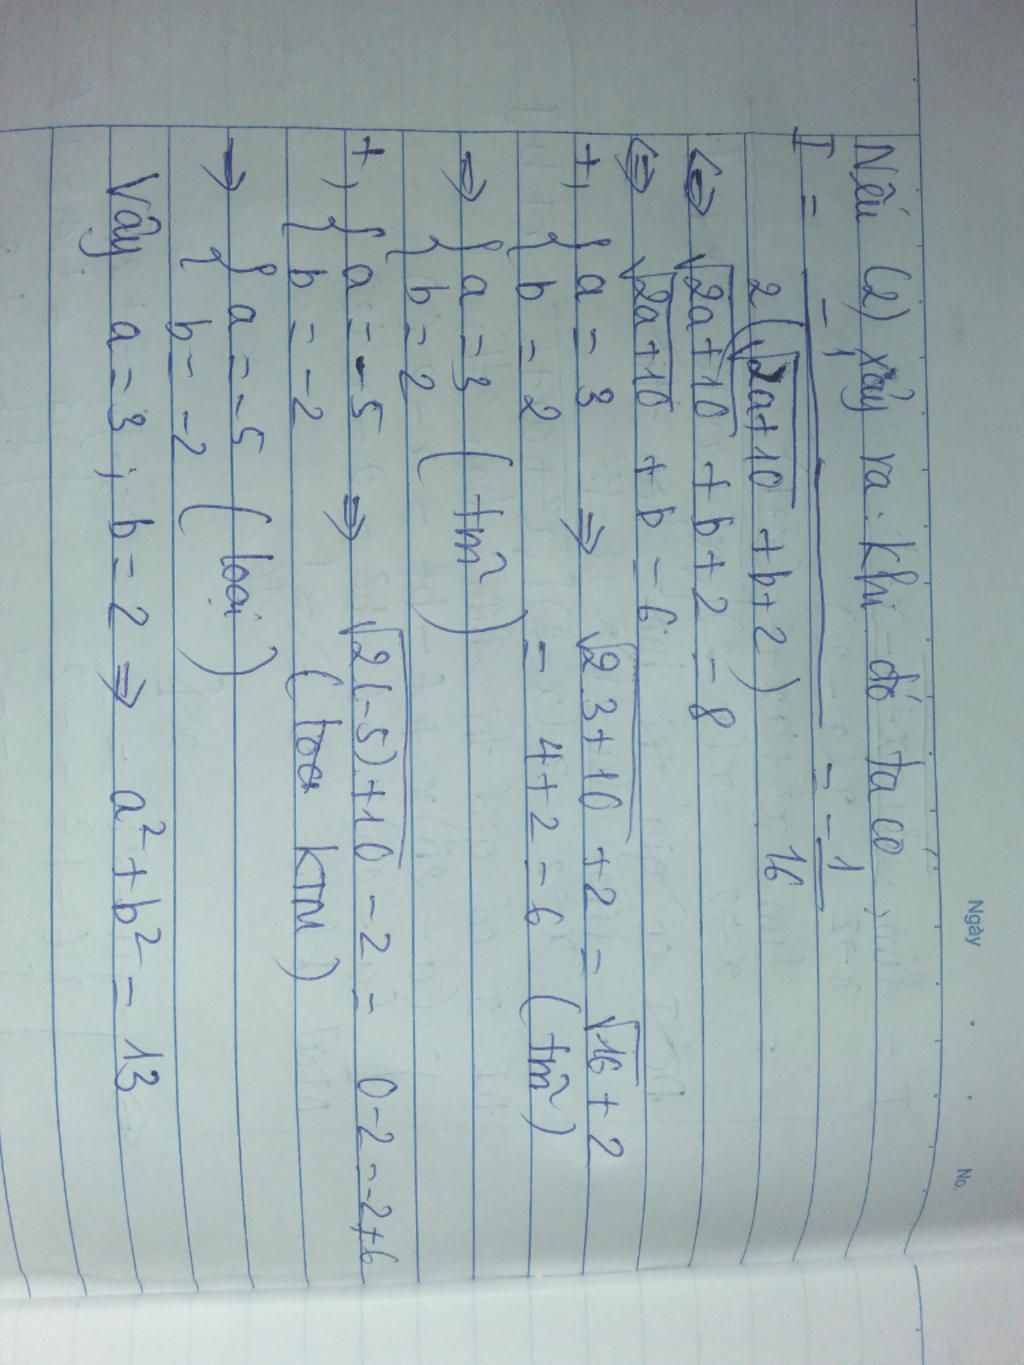 Ngày
No.
Nếu (2) xảy ra. khi đó ta có
I = -1 / 2(√2a+10 + b+2) = -1/16
⇔ √2a+10 + b+2 = 8
⇔ √2a+10 + b = 6
+, { a = 3 b = 2 ⇒ √2.3+10 + 2 = √16 + 2
= 4+2 = 6 (tm²)
⇒ { a = 3 b = 2 (tm²)
+, { a = -5 b = -2 ⇒ √2(-5)+10 - 2 = 0-2 = -2 ≠ 6
(loại KTM)
⇒ { a = -5 b = -2 (loại)
Vậy a = 3 ; b = 2 ⇒ a² + b² = 13